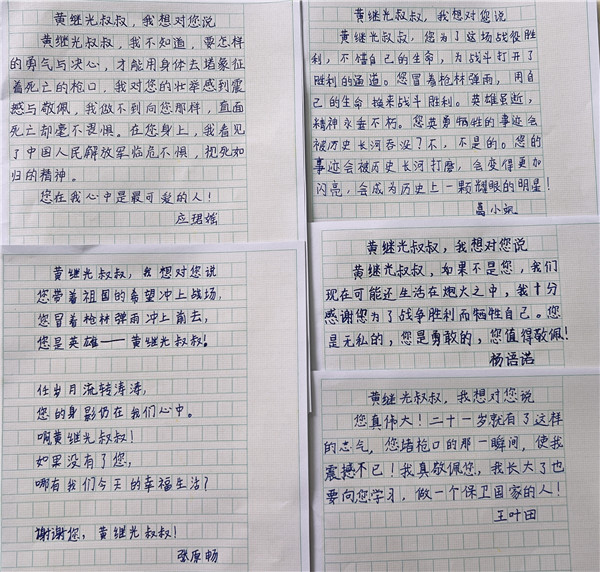 黄继光叔叔，我想对您说
黄继光叔叔，我不知道，要怎样
的勇气与决心，才能用身体去堵象征
着死亡的枪口，我对您的壮举感到震
撼与敬佩，我做不到向您那样，直面
死亡却毫不畏惧。在您身上，我看见
了中国人民解放军临危不惧，视死如
归的精神。
您在我心中是最可爱的人！
应珺瑶
黄继光叔叔，我想对您说
您带着祖国的希望冲上战场，
您冒着枪林弹雨冲上前去，
您是英雄——黄继光叔叔！
任岁月流转涛涛，
您的身影仍在我们心中。
啊黄继光叔叔！
如果没有了您，
哪有我们今天的幸福生活？
谢谢您，黄继光叔叔！
张原畅
黄继光叔叔，我想对您说
黄继光叔叔，您为了这场战役胜
利，不惜自己的生命，为战斗打开了
胜利的通道。您冒着枪林弹雨，用自
己的生命换来战斗胜利。英雄虽逝，
精神永垂不朽。您英勇牺牲的事迹会
被历史长河吞没？不，不是的。您的
事迹会被历史长河打磨，会变得更加
闪亮，会成为历史上一颗耀眼的明星！
葛小
黄继光叔叔，我想对您说
黄继光叔叔，如果不是您，我们
现在可能还生活在炮火之中，我十分
感谢您为了战争胜利而牺牲自己。您
是无私的，您是勇敢的，您值得敬佩！
杨语诺
黄继光叔叔，我想对您说
您真伟大！二十一岁就有了这样
的志气，您堵枪口的那一瞬间，使我
震撼不已！我真敬佩您，我长大了也
要向您学习，做一个保卫国家的人！
王叶田